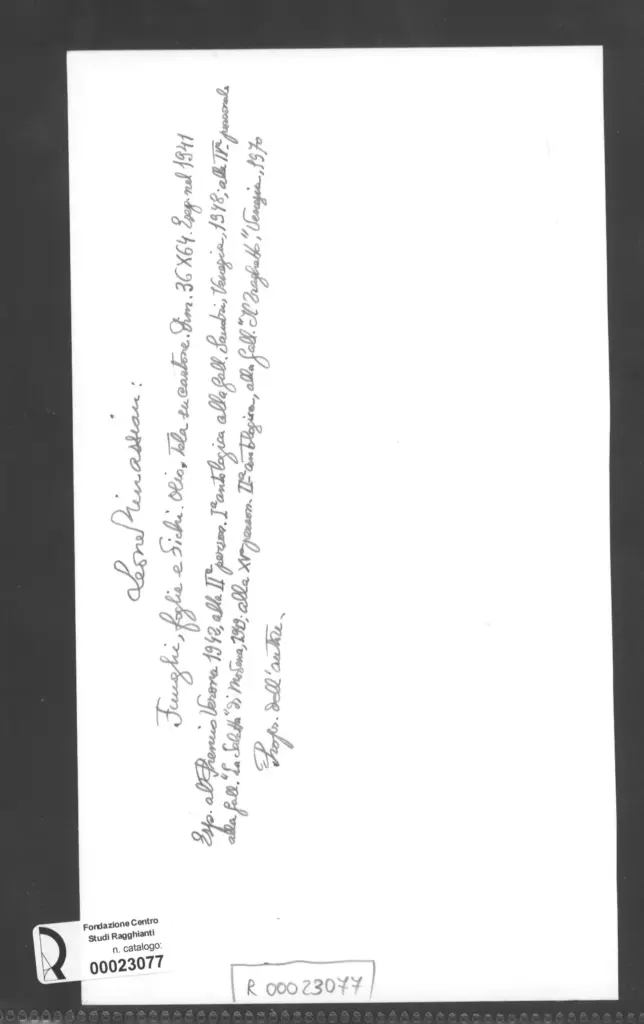 Leone Minassian:
Funghi, foglie e Fichi. Olio, tela su cartone. Dim. 36X64. Esp. nel 1941
Esp. al Premio Verona 1942, alla IIª person. Iª antologica alla Gall. Sandri, Venezia, 1948; alla IVª personale
alla Gall. "La Saletta" di Modena, 1949; alla XVª person. IIª antologica, alla Gall. "Il Traghetto", Venezia, 1970
Propr. dell'autore.
Fondazione Centro
Studi Ragghianti
n. catalogo:
00023077
R 00023077